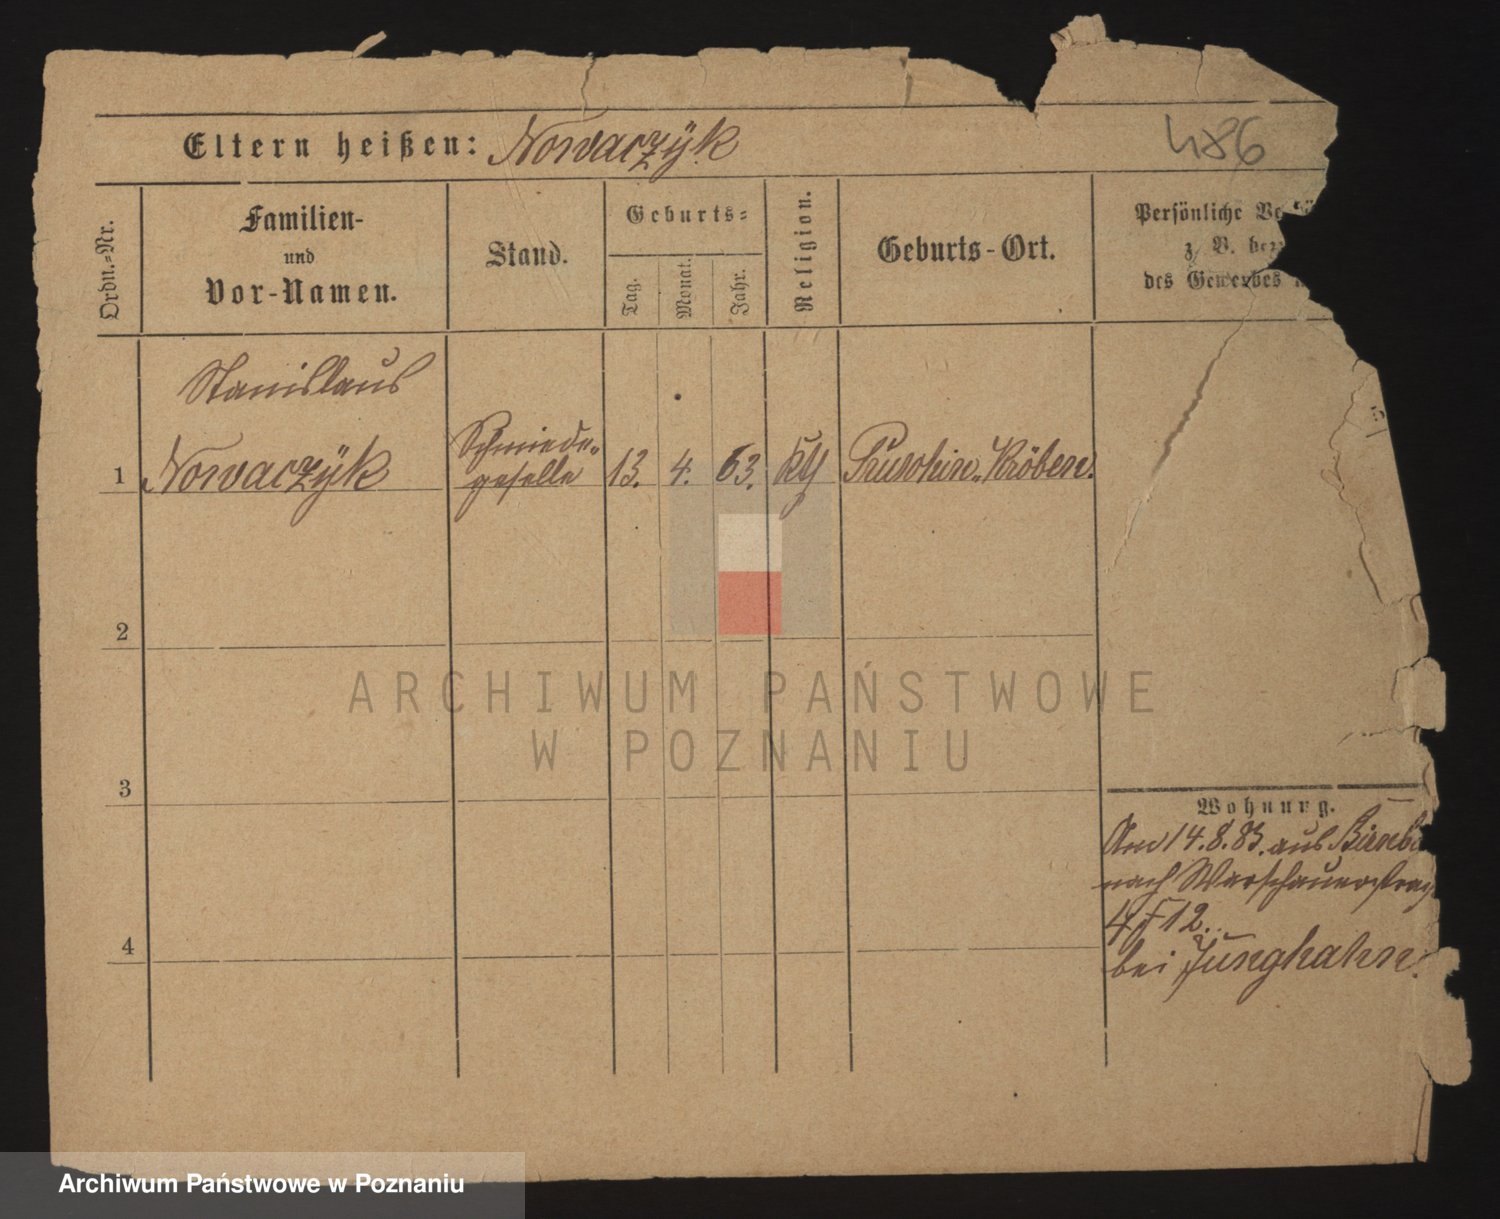 Eltern heißen: Nowaczÿk
486
Ordn.=Nr.
Familien-
und
Vor-Namen.
Stand.
Geburts=
Tag.
Monat.
Jahr.
Religion.
Geburts-Ort.
Persönliche
z. B.
des Gewerbes
Stanislaus
1 Nowaczÿk
Schmiede-
geselle
13. 4. 63. kth Kröben.
2
3
4
Wohnung.
Am 14.8.83. aus Birnb
nach Warschauerstraß
4/5 12.
bei Junghahn.
ARCHIWUM PAŃSTWOWE
W POZNANIU
Archiwum Państwowe w Poznaniu